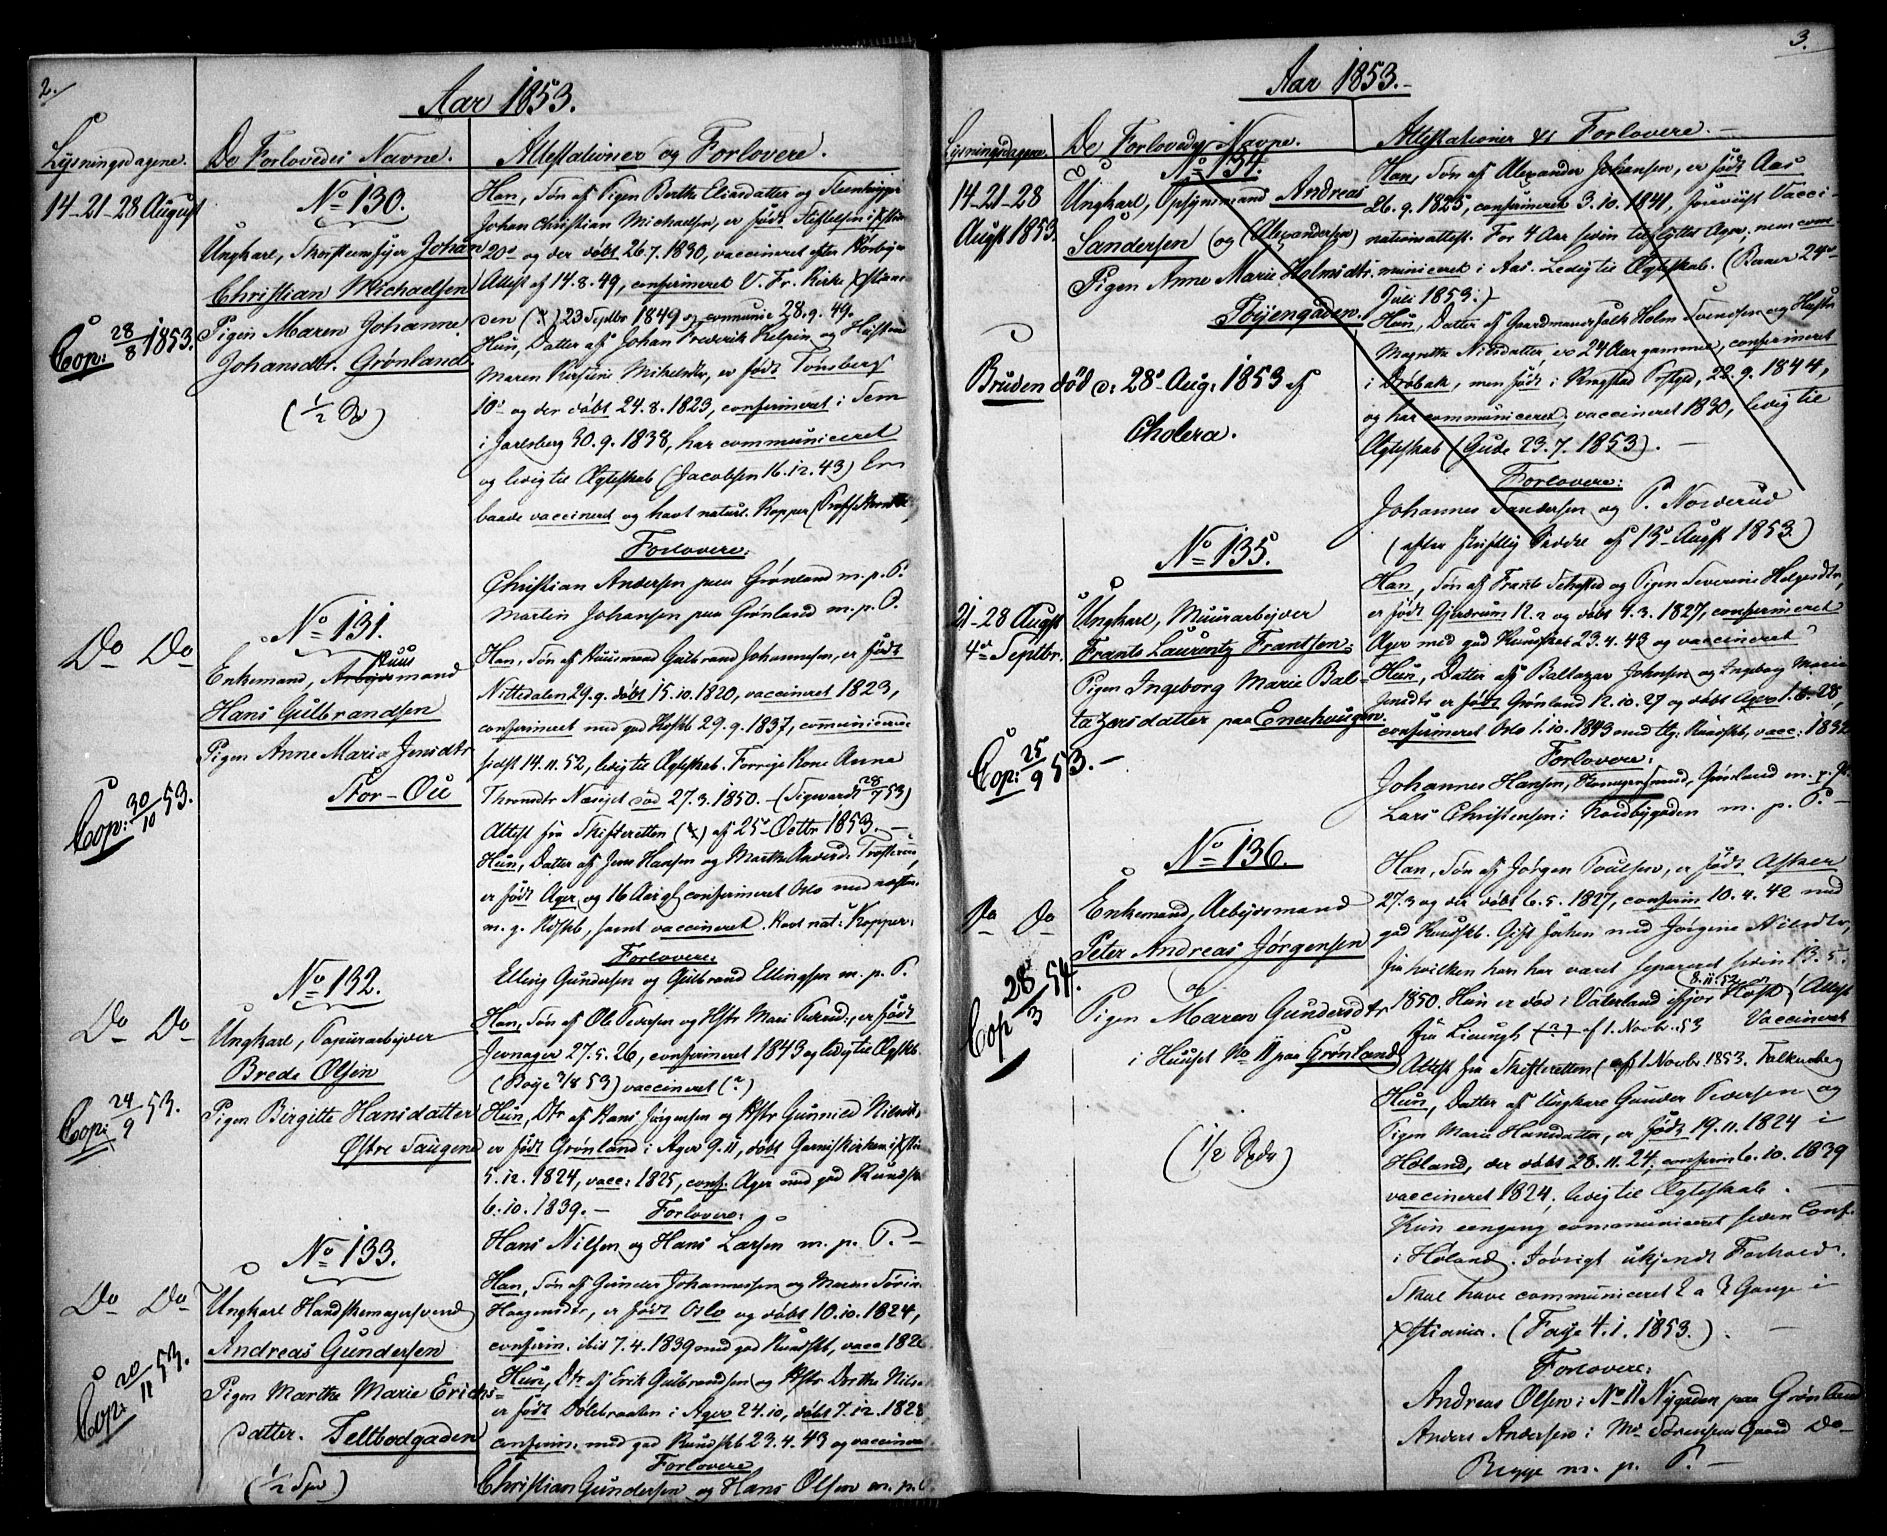 2.
Aar 1853.
Lysningsdagene.
De Forlovedes Navne.
Attestationer og Forlovere.
14-21-28 August
No 130.
Ungkarl, Skorsteensfeier Johan
Christian Michaelsen
Pigen Maren Johanne
Johansdtr. Grønland.
(1/2 Sp)
Cop: 28/8 1853.
Han, Søn af Pigen Berthe Eliasdatter og Steenhugger
Johan Christian Michaelsen, er født
20de og der døbt 26.7.1830, vaccineret efter
Attest af 14.8.49, confirmeret V. Fr. Kirke
den (x) 23 Septbr 1849 og communic 28.9.49.
Hun, Datter af Johan Frederik og
Maren Kirstine er født Tønsberg
10de og der døbt 24.8.1823, confirmeret i Sem
i Jarlsberg 30.9.1838, har communiceret
og ledig til Ægteskab (Jacobsen 16.12.43) Er
baade vaccineret og havt naturl. Kopper
Forlovere:
Christian Andersen paa Grønland m.p.P.
Martin Johansen paa Grønland m.p.P.
Do Do
No 131.
Enkemand, Huus mand
Hans Gulbrandsen
Pigen Anne Maria Jensdtr
Stor-Øu
Cop: 30/10 53.
Han, Søn af Huusmand Gulbrand Johannesen, er født
Nittedalen 29.9. døbt 15.10.1820, vaccineret 1823,
confirmeret med god Kdskb 29.9.1837, communiceret
sidst 14.11.52, ledig til Ægteskab. Forrige Kone Anne
Thronsdtr død 27.3.1850.
Attest fra Skifteretten (x) af 25de Octbr 1853.
Hun, Datter af Jens Hansen og Marthe
er født Ager og 16 Aar gl confirmeret Oslo med
m.g. Kdskb, samt vaccineret. Havt nat: Kopper.
Forlovere:
Elling Gundersen og Gulbrand Ellingsen m.p.P.
Do Do
No 132.
Ungkarl, Papirarbeider
Brede Olsen
Pigen Birgitte Hansdatter
Østre Saugene
Cop: 24/9 53.
Han, Søn af Ole Pedersen og Hstr Mari er født
Jevnager 27.5.26, confirmeret 1843 og ledig til Ægtskb.
vaccineret (?)
Hun, Dtr af Hans Jørgensen og Hstr Gunnild Nilsdtr,
er født Grønland i Ager 9.11, døbt Garnisskirken i
5.12.1824, vacc: 1825, conf. Ager med god Kundsk
6.10.1839. Forlovere:
Hans Nilsen og Hans Larsen m.p.P.
Do Do
No 133.
Ungkarl Handskemagersvend
Andreas Gundersen
Pigen Marthe Marie Erichs-
datter. Teltbodgaden
(1/2 Spd)
Cop: 20/11 53.
Han, Søn af Gunder Johannessen og Maren
Haagensdtr, er født Oslo og døbt 10.10.1824,
confirm. ibid 7.4.1839 med god Kundskb, vacc 1826
Hun, Dtr af Erik Gulbrandsen og Hstr Dorthe
er født i Ager 24.10, døbt 7.12.1828
confirm. med god Kundskb 23.4.43 og vaccineret
Forlovere
Christian Gundersen og Hans Olsen m.p.P.
3.
Aar 1853.
Lysningsdagene.
De Forlovedes Navne.
Attestationer & Forlovere.
14-21-28
Augst 1853.
No 134.
Ungkarl, Opsynsmand Andreas
Sandersen og (Alexandersen)
Pigen Anne Marie Holmsdtr.
Tøyengaden.
Bruden død d: 28de Aug: 1853 af
Cholera.
Han, Søn af Alexander Johansen, er født Aas
26.9.1825, confirmeret 3.10.1841, forevist Vacci-
nationsattest. For 4 Aar siden tilflyttet Ager, men com-
municeret i Aas. Ledig til Ægteskab. (24de
Juli 1853.)
Hun, Datter af Gaardmandsfolk Holm Svendsen og Hustr
Magnethe Nilsdatter, er 24 Aar gammel, confirmeret
i Drøbak, men født i 22.9.1844,
og har communiceret, vaccineret 1830, ledig til
Ægteskab (Gude 23.7.1853).
Forlovere:
Johannes Sandersen og P. Norderud
(efter skriftlig af 13de Augst 1853)
21-28 Augst
4de Septbr.
No 135.
Ungkarl, Muurarbeider
Frants Laurentz Frantsen
Pigen Ingeborg Marie Bal-
tazersdatter paa Enerhougen.
Cop: 25/9 53.
Han, Søn af Frants og Pigen Severine Holgersdtr,
er født Gjerdrum 12.2 og døbt 4.3.1827, confirmeret
Ager med god Kundskb 23.4.43 og vaccineret
Hun, Datter af Baltazar Johnsen og Ingeborg Marie
Jensdtr er født Grønland 12.10.27 og døbt
confirmeret Oslo 1.10.1843 med tlg. Kundskb, vacc: 1832
Forlovere:
Johannes Hansen, Grønland m.p.P.
Lars Christensen i m.p.P.
Do Do
No 136.
Enkemand, Arbeidsmand
Peter Andreas Jørgensen
og
Pigen Maren Gundersdtr
i Huuset No 11 paa Grønland
(1/2 Spd)
Cop 28/3 54.
Han, Søn af Jørgen Poulsen, er født Asker
27.3 og der døbt 6.5.1827, confirm 10.4.42 med
god Kundskb. Gift før hen med Jørgine Nilsdtr,
fra hvilken han har været separeret siden 13.5.
8.11.52
1850. Hun er død i Vaterland (Attest
fra (?) af 1. Novbr. 53 Vaccineret
Attest fra Skifteretten (af 1 Novbr. 1853. Falkenberg
Hun, Datter af Ungkarl Gunder Pedersen og
Pigen Marie Hansdatter, er født 19.11.1824 i
Høland, der døbt 28.11.24, confirm 6.10.1839
vaccineret 1824, ledig til Ægteskab.
Kun eengang communiceret siden Conf.
i Høland. Iøvrigt ukjendt Forhold.
Skal have communiceret 2 a 3 Gange i
(Faye 4.1.1853.)
Forlovere:
Andreas Olsen i No 11 Nygaden paa Grønland
Anders Andersen i Sørensens Gaard Do
Begge m.p.P.